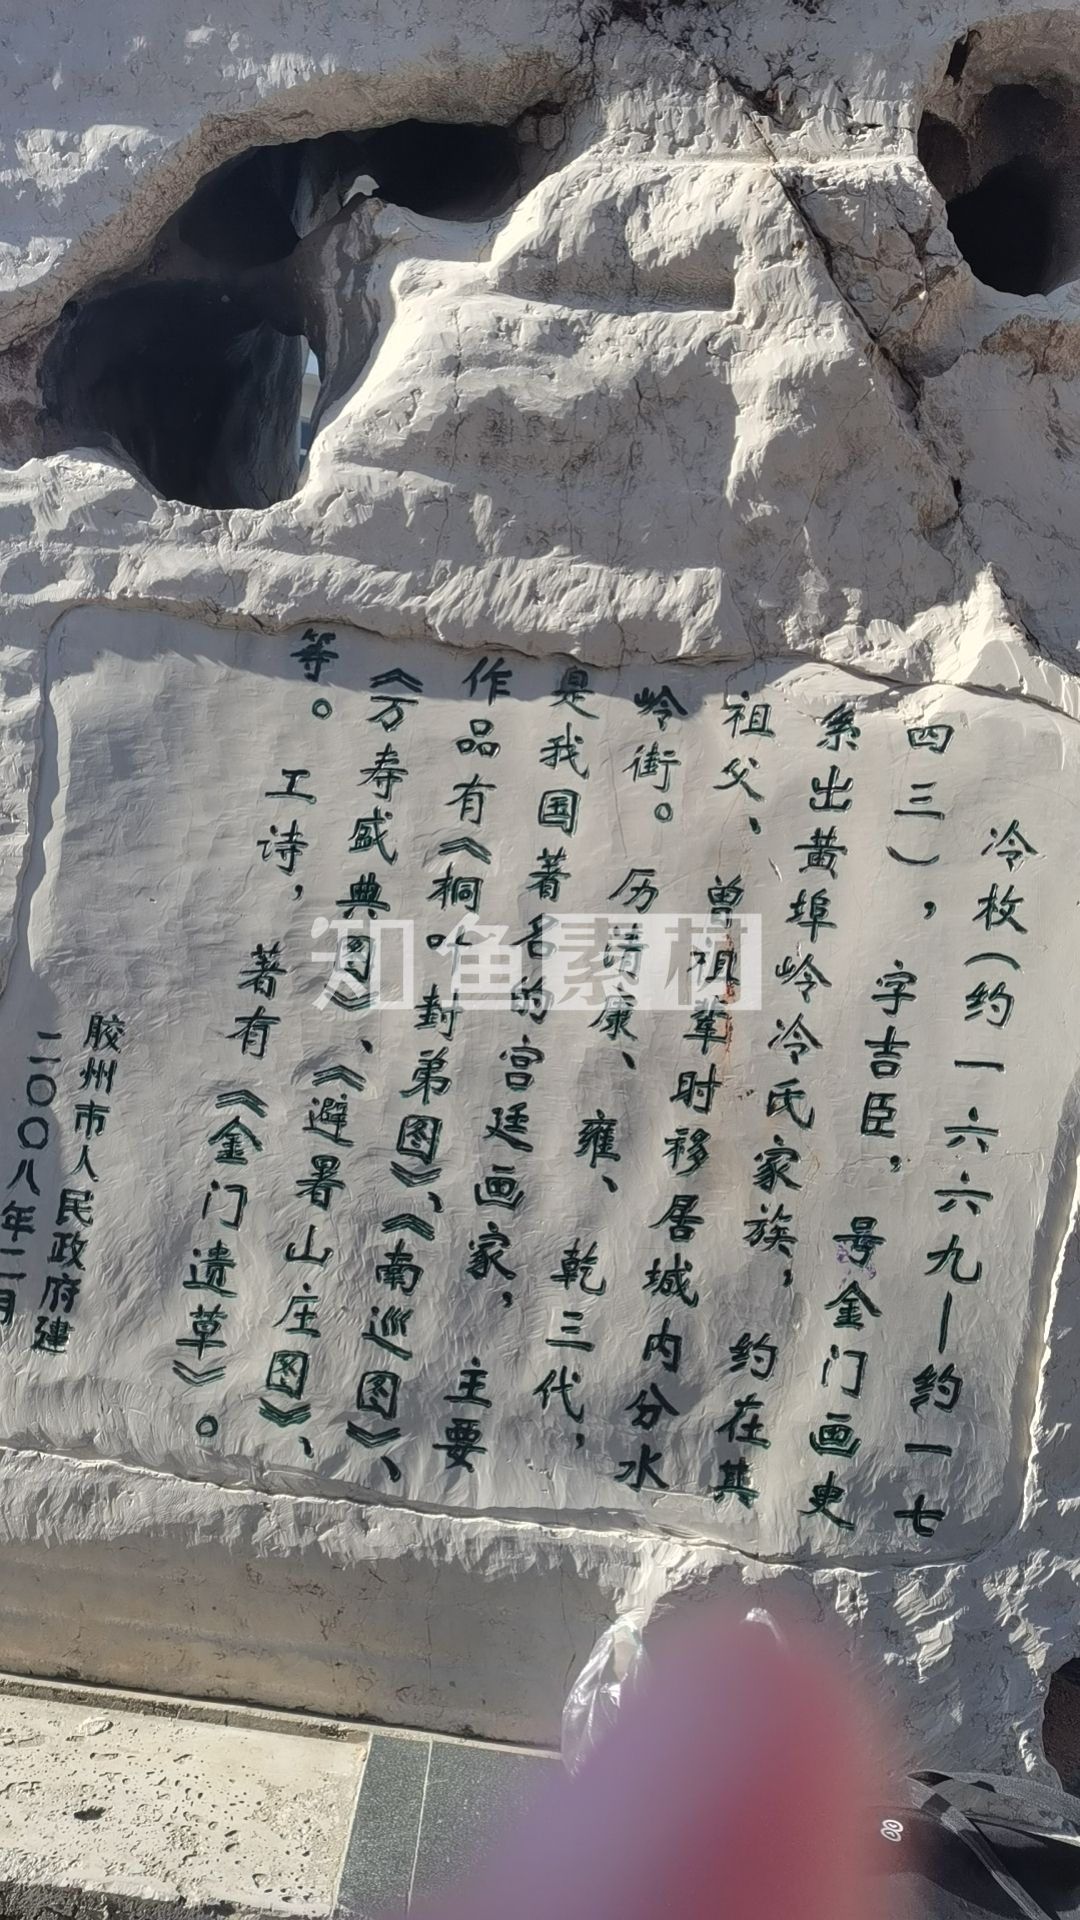 冷枚(约一六六九—约一七
四三)，字吉臣，号金门画史
系出黄埠岭冷氏家族，约在其
祖父、曾祖辈时移居城内分水
岭街。历清康、雍、乾三代，
是我国著名的宫廷画家，主要
作品有《桐叶封弟图》、《南巡图》、
《万寿盛典图》、《避暑山庄图》、
等。工诗，著有《金门遗草》。
胶州市人民政府建
二〇〇八年二月
知鱼素材